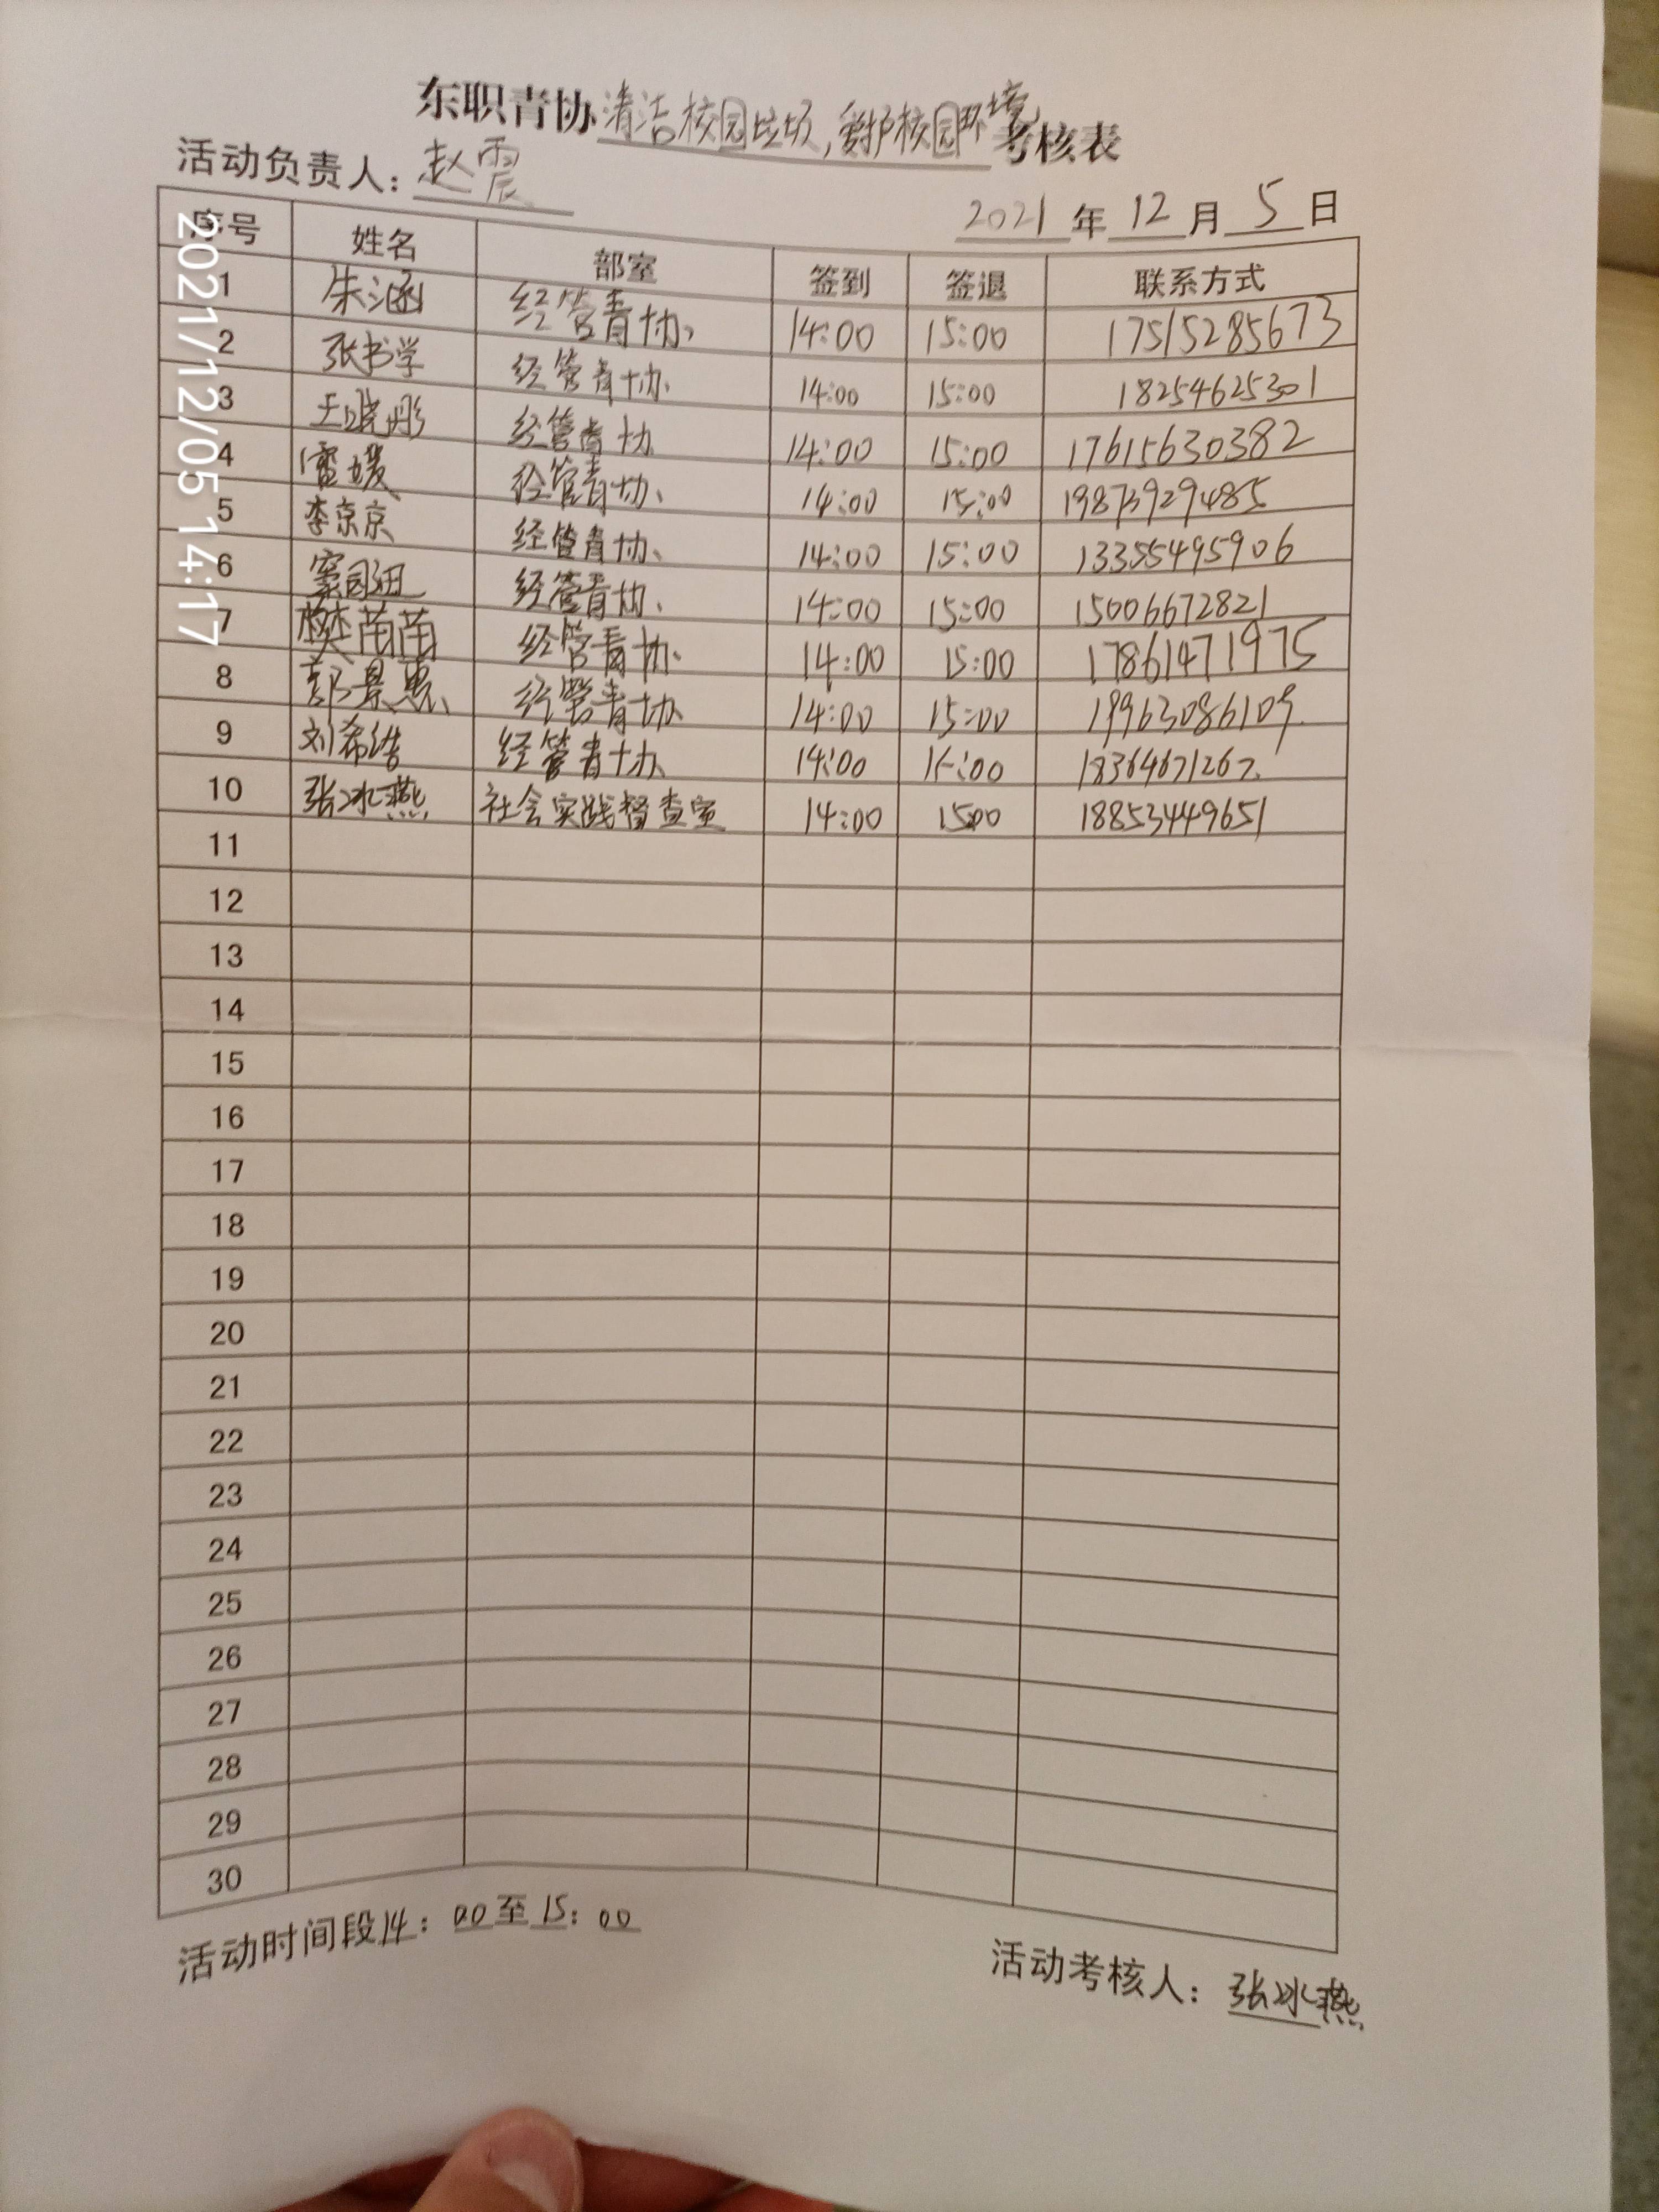 东职青协清洁校园垃圾,爱护校园环境考核表
活动负责人:赵震
2021年12月5日
序号 姓名 部室 签到 签退 联系方式
1 朱涵 经管青协 14:00 15:00 17515285673
2 张书学 经管青协 14:00 15:00 18254625301
3 王晓彤 经管青协 14:00 15:00 17615630382
4 雷媛 经管青协 14:00 15:00 19873929485
5 李京京 经管青协 14:00 15:00 13355495906
6 经管青协 14:00 15:00 15006672821
7 樊苗苗 经管青协 14:00 15:00 17861471975
8 郭景惠 经管青协 14:00 15:00 19963086109
9 刘希浩 经管青协 14:00 15:00 18364671267
10 张冰燕 社会实践督查室 14:00 15:00 18853449651
11
12
13
14
15
16
17
18
19
20
21
22
23
24
25
26
27
28
29
30
活动时间段14:00至15:00
活动考核人:张冰燕
2021/12/05 14:17